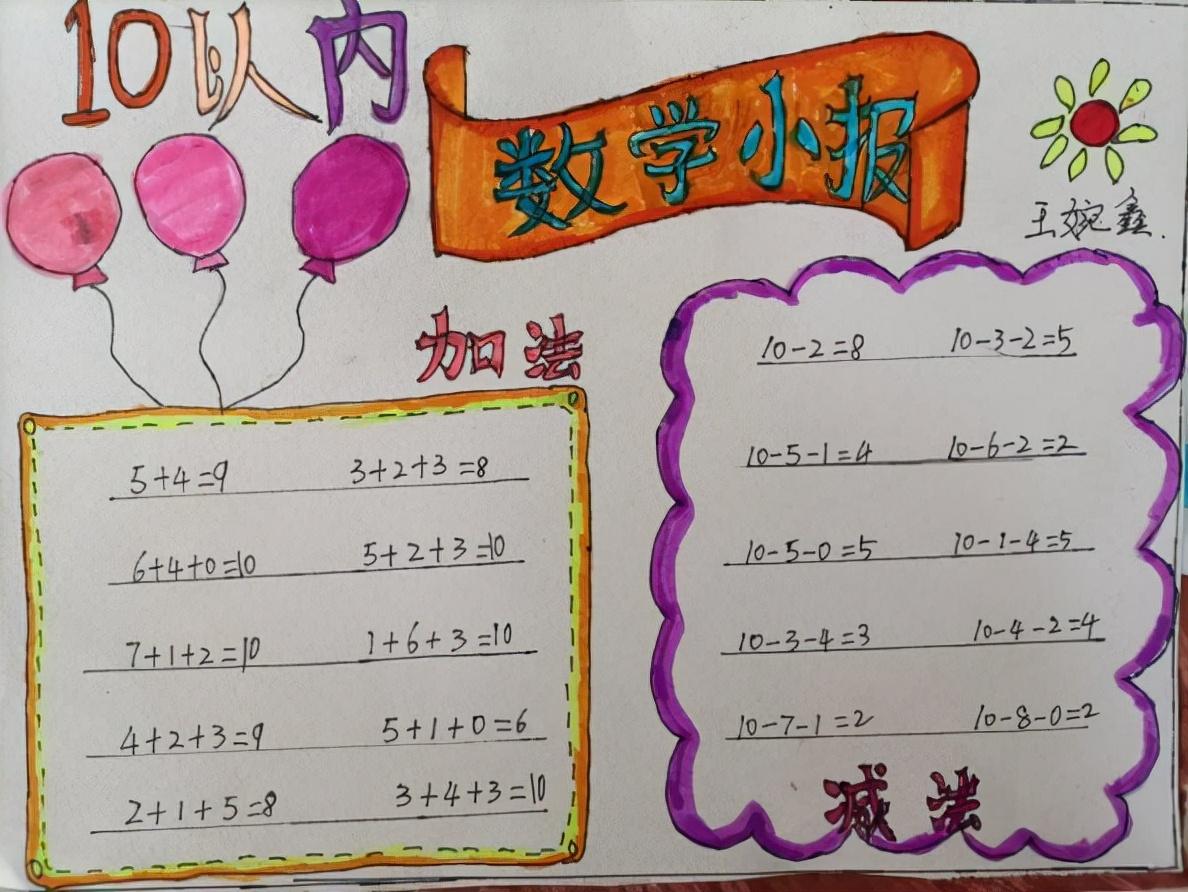 10以内
数学小报
王婉鑫.
加法
5+4=9 3+2+3=8
6+4+0=10 5+2+3=10
7+1+2=10 1+6+3=10
4+2+3=9 5+1+0=6
2+1+5=8 3+4+3=10
10-2=8 10-3-2=5
10-5-1=4 10-6-2=2
10-5-0=5 10-1-4=5
10-3-4=3 10-4-2=4
10-7-1=2 10-8-0=2
减法